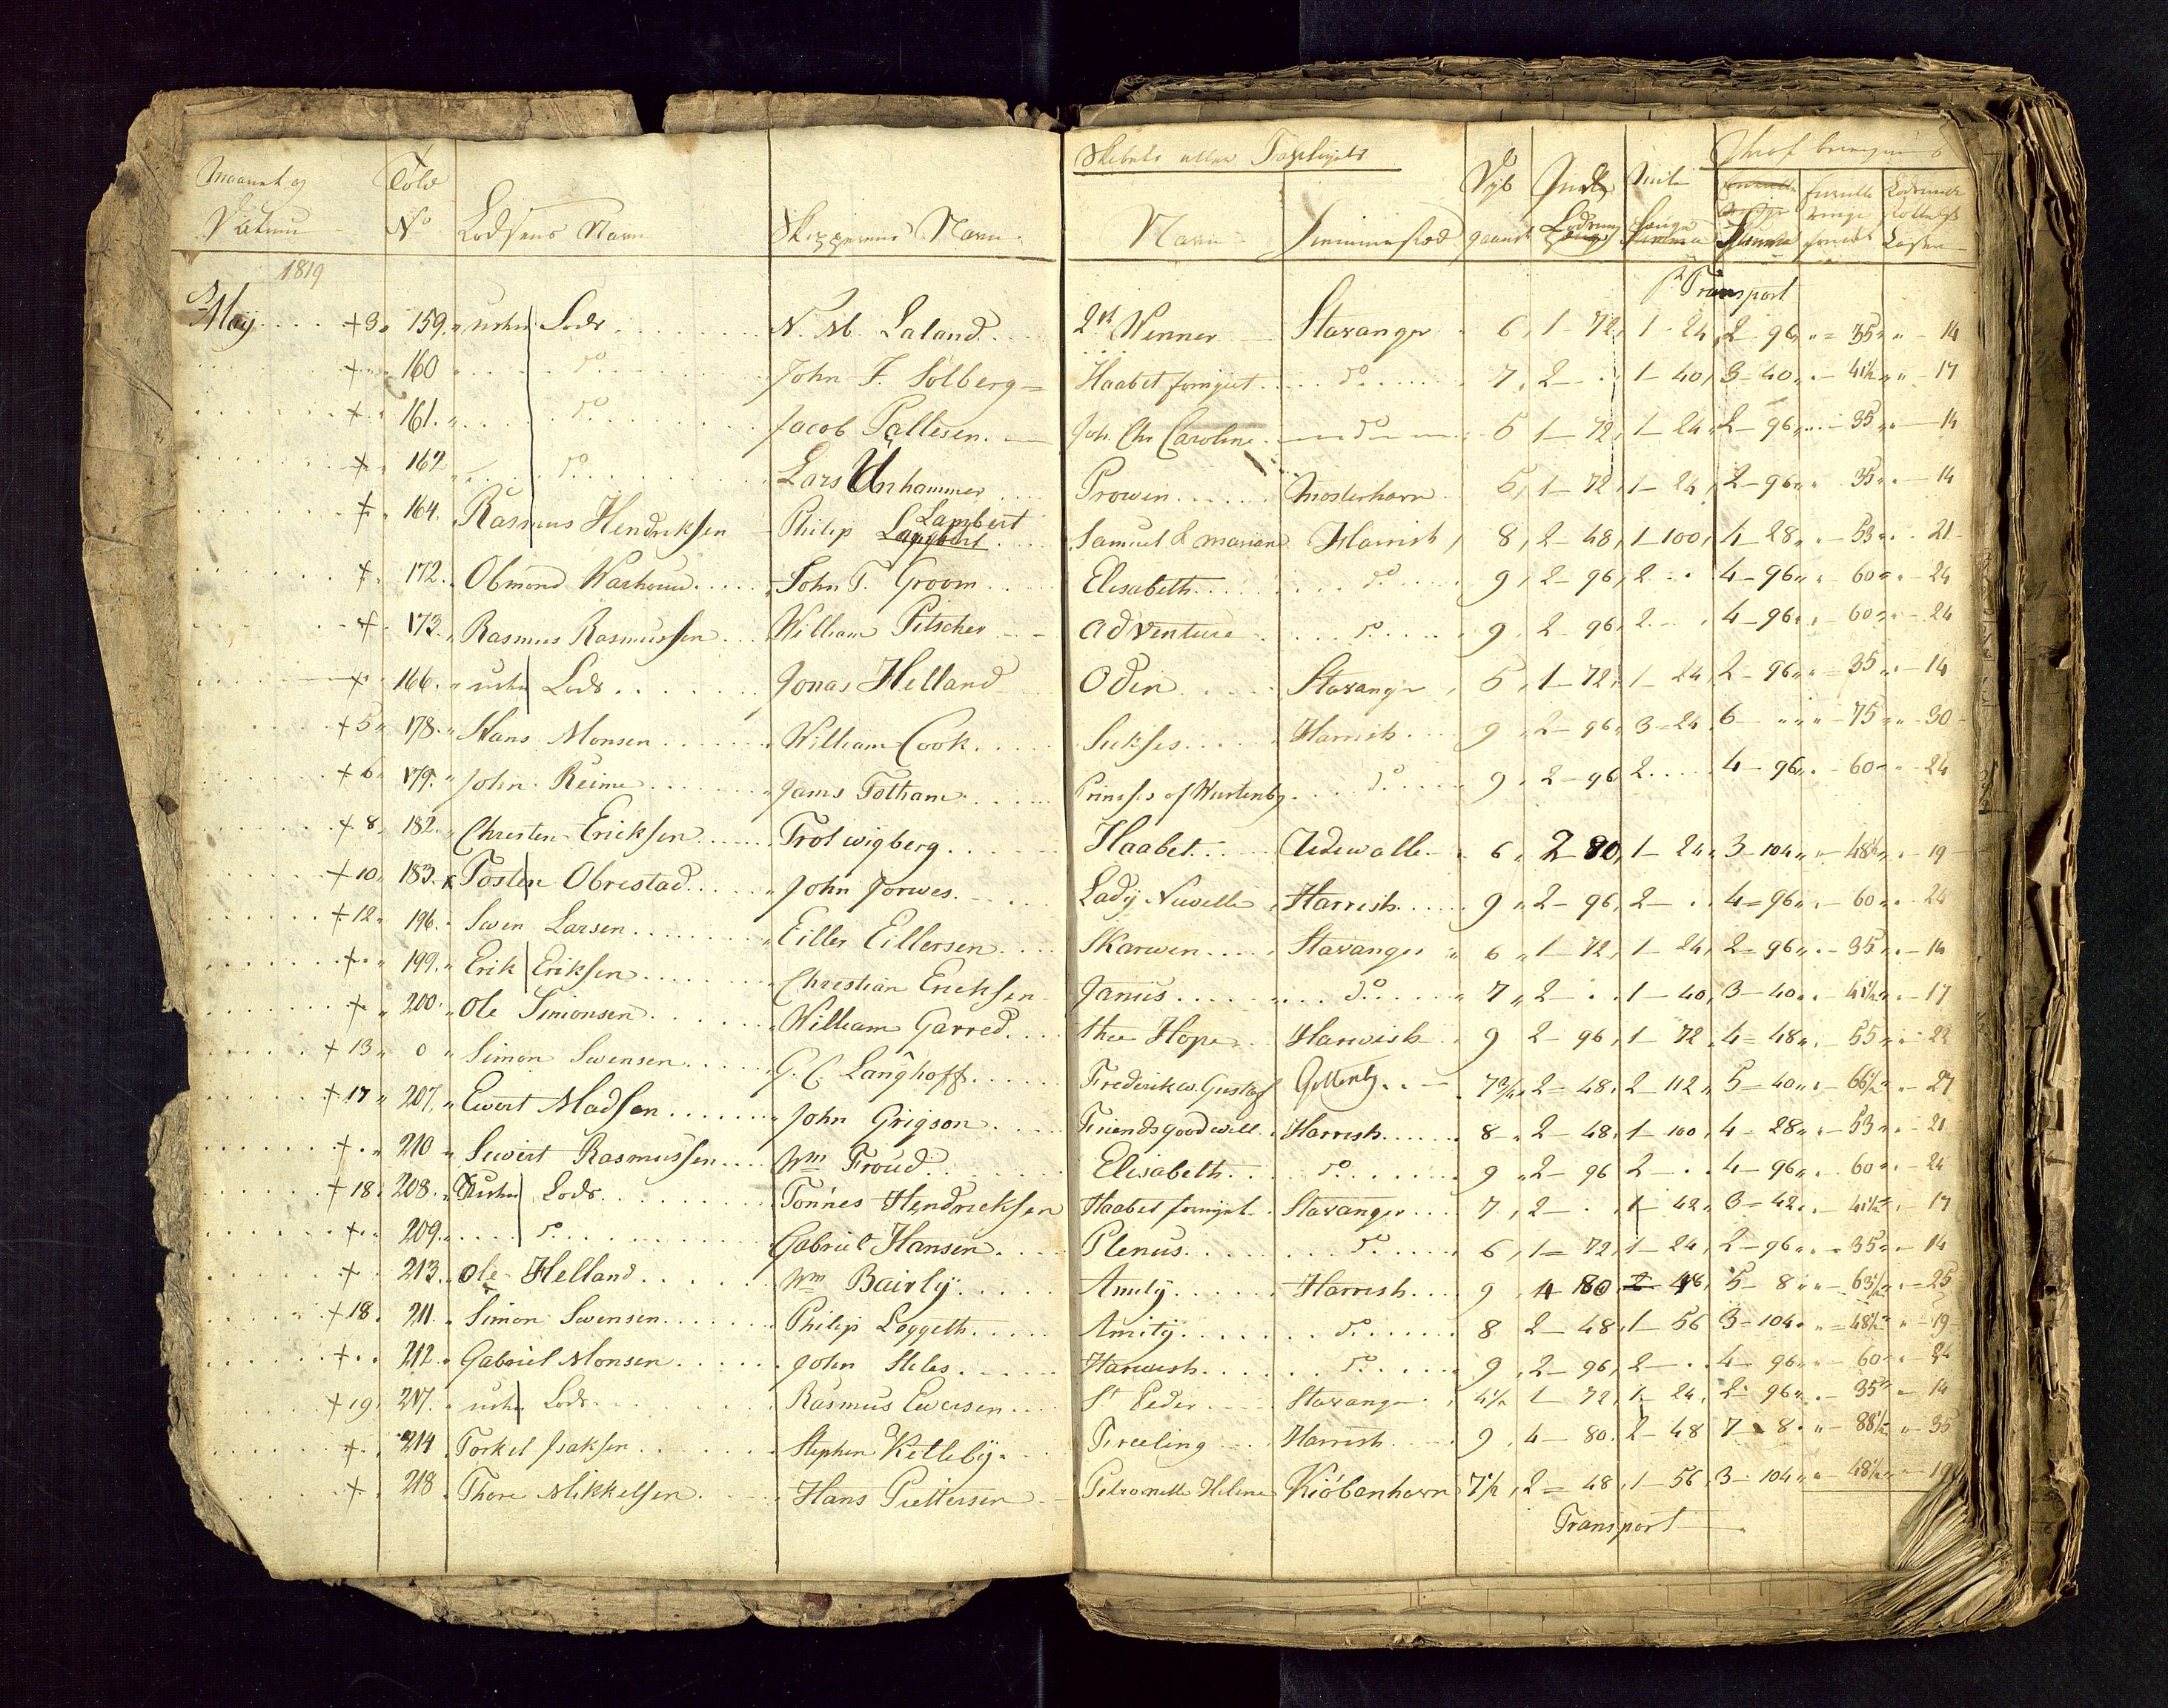 Maanet og Datum Told No Lodsens Navn Skipperens Navn Skibets eller Fartøyets Navn Hiemmested
1819 Transport
May 3 159 uden Lods N. M. Laland 2de Venner Stavanger 6 1-72 1-24 2-96 35 14
160 do John F. Sólberg Haabet fornyet do 7 2 1-40 3-40 41½ 17
161 do Jacob Pallesen Joh. Chr Caroline do 5 1-72 1-24 2-96 35 14
162 do Lars Unhammer Prowen Mosterhavn 5 1-72 1-24 2-96 35 14
164 Rasmus Hendriksen Philip Lambert Samuel & Mariane Harrish 8 2-48 1-100 4-28 53 21
172 Obmond Warhoud John T. Groom Elisabeth do 9 2-96 2 4-96 60 24
173 Rasmus Rasmussen William Pitscher Adventure do 9 2-96 2 4-96 60 24
166 uden Lods Jonas Helland Odin Stavanger 5 1-72 1-24 2-96 35 14
5 178 Hans Monsen William Cook Sukses Harrish 9 2-96 3-24 6 75 30
6 179 John Reime Jams Totham Prinses of Wurtenbg do 9 2-96 2 4-96 60 24
8 182 Christen Ericksen Trolwigberg Haabet Udewalle 6 2 80 1-24 3-104 48½ 19
10 183 Tosten Obrestad John Jorwes Lady Nuvelle Harrish 9 2-96 2 4-96 60 24
12 196 Swen Larsen Eiller Eillersen Skarwen Stavanger 6 1-72 1-24 2-96 35 14
199 Erik Eriksen Christian Ericksen Janus do 7 2 1-40 3-40 41½ 17
200 Ole Simonsen William Garred thee Hope Harwish 9 2-96 1-72 4-48 55 22
13 0 Simon Swensen G. C. Langhoff Frederik w. Gustaf Gottenbg 7¾ 2-48 2-112 5-40 66½ 27
17 207 Ewert Madsen John Grigson Friendsgoodwill Harrish 8 2-48 1-100 4-28 53 21
210 Siwert Rasmussen Wm Froud Elisabeth do 9 2-96 2 4-96 60 24
18 208 uden Lods Tonnes Hendricksen Haabet fornyet Stavanger 7 2 1-42 3-42 41½ 17
209 do Gabriel Hansen Plenus do 6 1-72 1-24 2-96 35 14
213 Ole Helland Wm Bairly Amity Harrish 9 4 80 48 5-8 63½ 25
18 211 Simon Swensen Philip Loggeth Amity do 8 2-48 1-56 3-104 48½ 19
212 Gabriel Monsen John Stiles Harwish do 9 2-96 2 4-96 60 24
19 217 uden Lods Rasmus Ewersen St Peder Stavanger 4½ 1 72 1-24 2-96 35 14
214 Torkel Isaksen Stephen Kettleby Freeling Harrish 9 4-80 2-48 7-8 88½ 35
218 Thore Mikkelsen Hans Piettersen Petronelle Helene Kióbenhavn 7½ 2-48 1-56 3-104 48½ 19
Transport